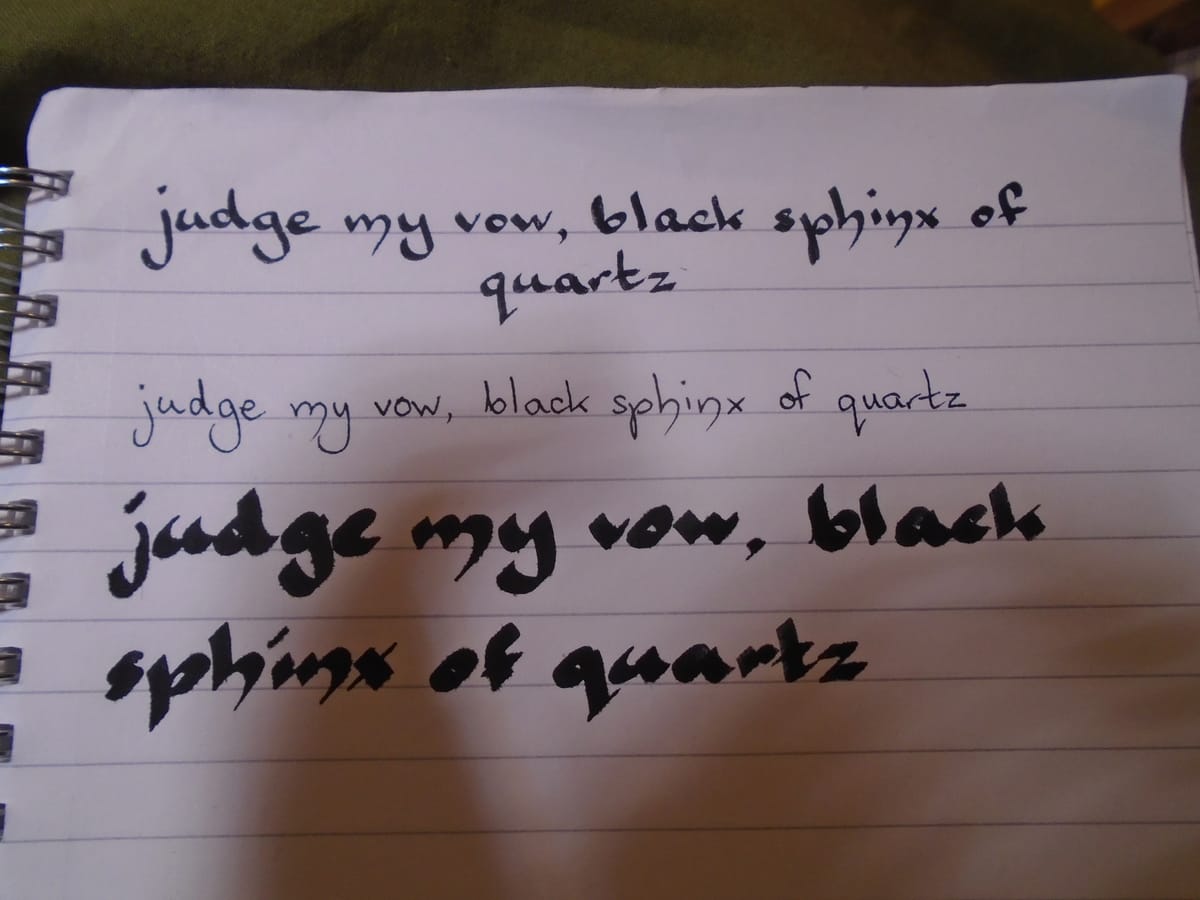 judge my vow, black sphinx of
quartz
judge my vow, black sphinx of quartz
judge my vow, black
sphinx of quartz